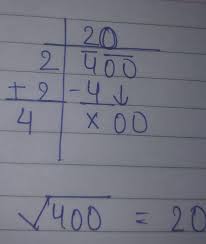 20
2 400
+2 -4↓
4 ×00
√400 = 20